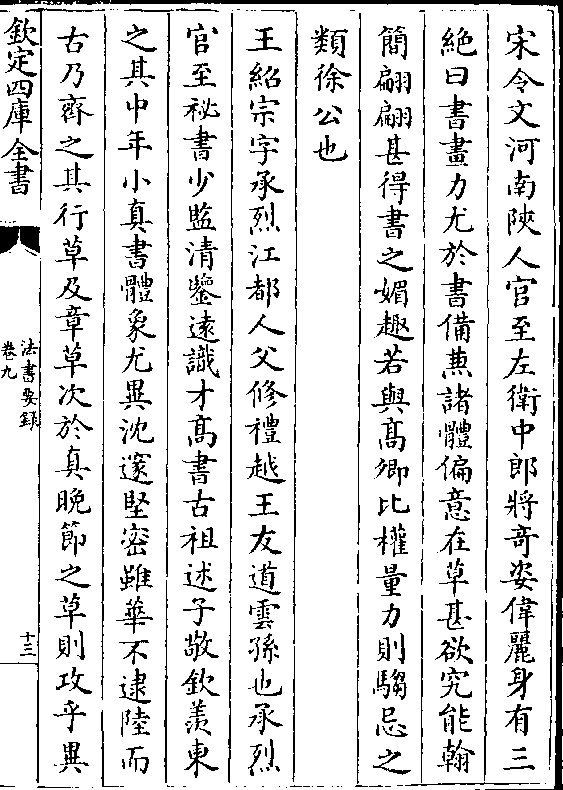 宋令文河南陝人官至左衛中郎將竒姿偉麗身有三
絶曰書畫力尤於書備兼諸體偏意在草甚欲究能翰
簡翩翩甚得書之媚趣若與髙卿比權量力則騶忌之
類徐公也
王紹宗字承烈江都人父修禮越王友道雲孫也承烈
官至祕書少監清鑒遠識才髙書古祖述子敬欽羨東
之其中年小真書體象尤異沈邃堅密雖華不逮陸而
古乃齊之其行草及章草次於真晩節之草則攻乎異
欽定四庫全書
法書要錄
卷九
十三